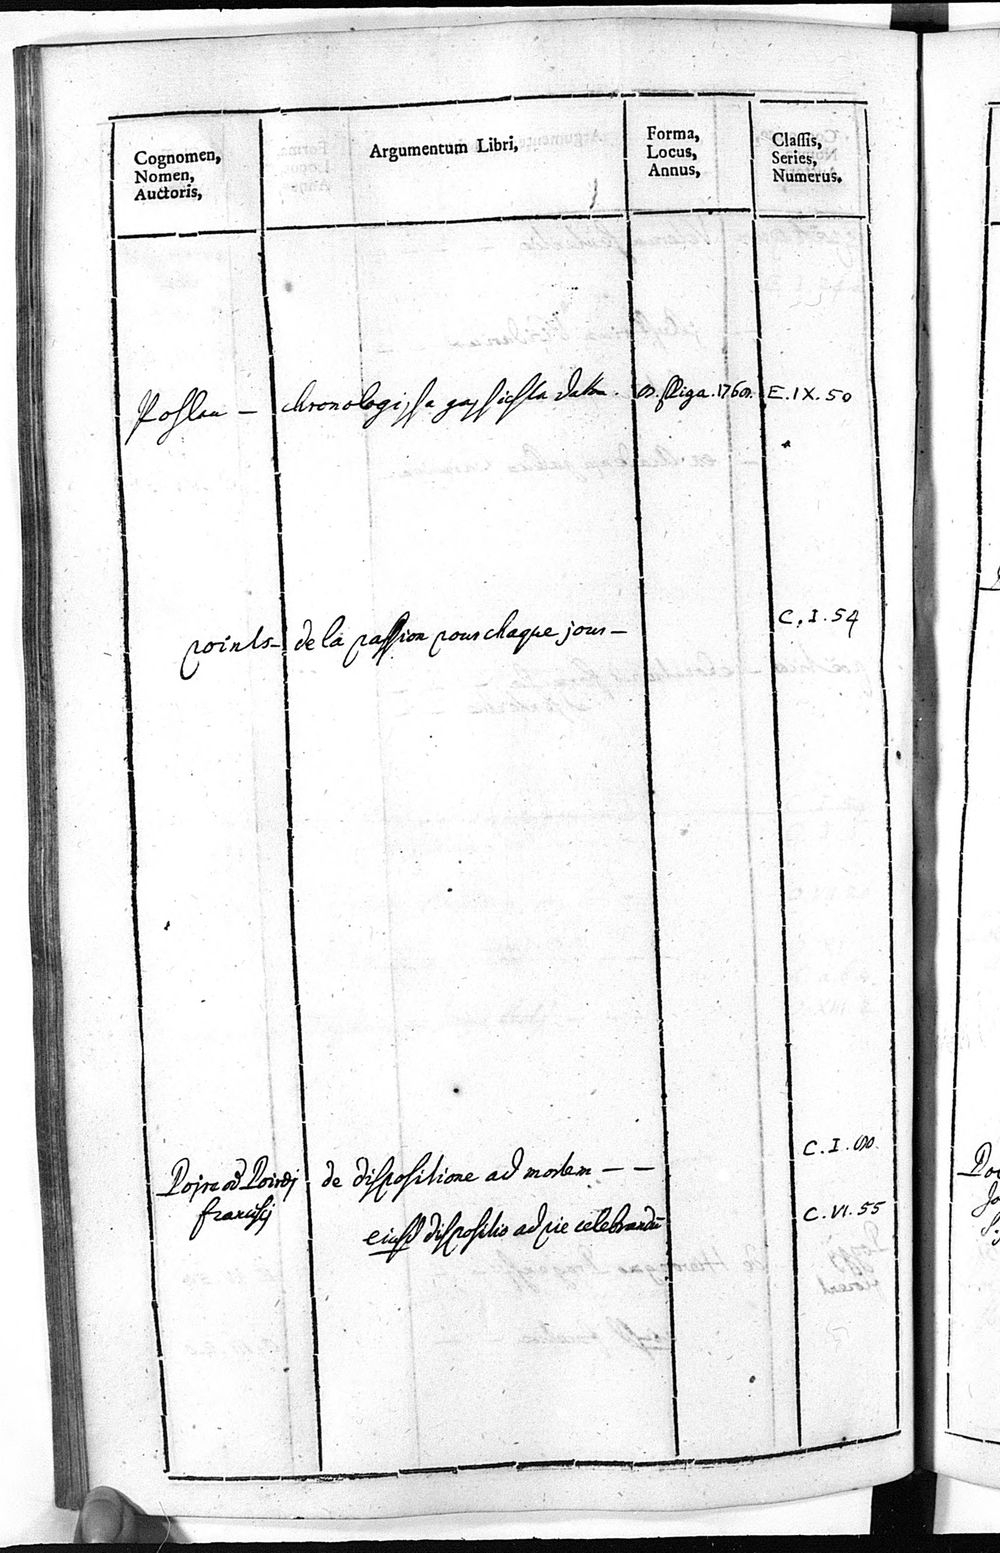 Cognomen,
Nomen,
Auctoris,
Argumentum Libri,
Forma,
Locus,
Annus,
Classis,
Series,
Numerus.
Pohlen — chronologische geschichte 8. Riga. 1760. E. IX. 50
points — de la passion pour chaque jour — C. I. 54
de dispositione ad mortem — — C. I.
francisci
eiusd dispositio ad pie celebrandū C. VI. 55